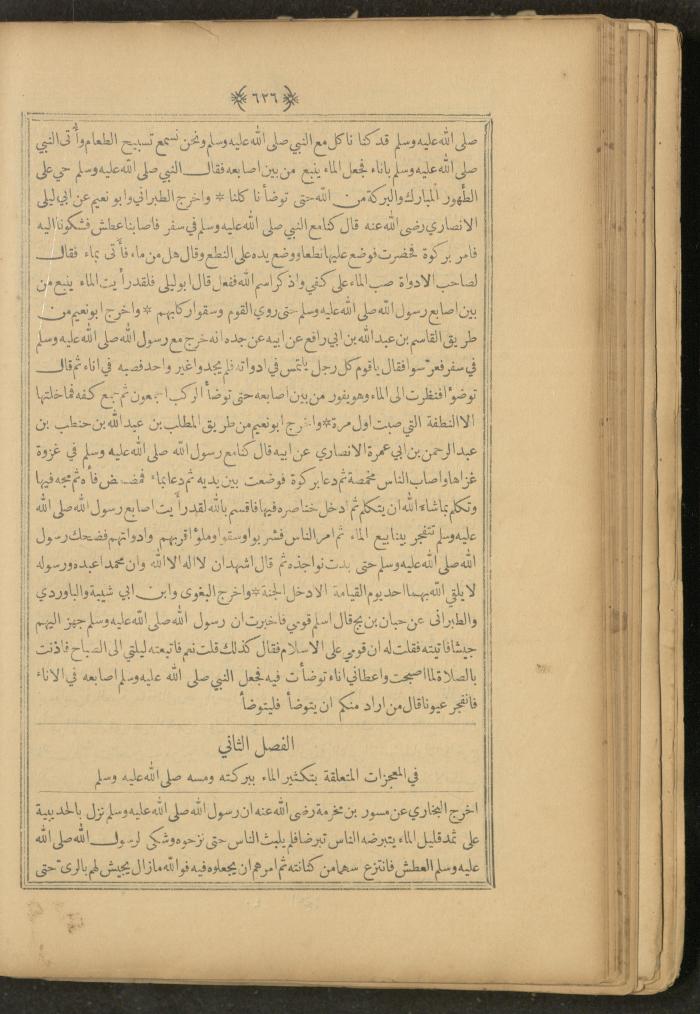 ٦٢٦
صلى الله عليه وسلم قد كنا نأكل مع النبي صلى الله عليه وسلم ونحن نسمع تسبيح الطعام وأُتى النبي
صلى الله عليه وسلم باناء فجعل الماء ينبع من بين اصابعه فقال النبي صلى الله عليه وسلم حي على
الطهور المبارك والبركة من الله حتى توضأنا كلنا * واخرج الطبراني وابو نعيم عن ابي ليلى
الانصاري رضى الله عنه قال كنا مع النبي صلى الله عليه وسلم في سفر فاصابنا عطش فشكونا اليه
فامر بركوة فحضرت فوضع عليها نطعا ووضع يده على النطع وقال هل من ماء فأتى بماء فقال
لصاحب الادواة صب الماء على كفي واذكر اسم الله ففعل قال ابو ليلى فلقد رأيت الماء ينبع من
بين اصابع رسول الله صلى الله عليه وسلم حتى روي القوم وسقوا ركابهم * واخرج ابو نعيم من
طريق القاسم بن عبد الله بن ابي رافع عن ابيه عن جده انه خرج مع رسول الله صلى الله عليه وسلم
في سفر فعرّسوا فقال يا قوم كل رجل يلتمس في ادواته فلم يجدوا غير واحد فصبه في اناء ثم قال
توضؤا فنظرت الى الماء وهو يفور من بين اصابعه حتى توضأ الركب اجمعون ثم جمع كفه فما خلتها
الا النطفة التي صبت اول مرة * واخرج ابو نعيم من طريق المطلب بن عبد الله بن حنطب بن
عبد الرحمن بن ابي عمرة الانصاري عن ابيه قال كنا مع رسول الله صلى الله عليه وسلم في غزوة
غزاها واصاب الناس مخمصة ثم دعا بركوة فوضعت بين يديه ثم دعا بماء فمضمض فاه ثم مجه فيها
وتكلم بما شاء الله ان يتكلم ثم ادخل خناصره فيها فاقسم بالله لقد رأيت اصابع رسول الله صلى الله
عليه وسلم تتفجر بينابيع الماء ثم امر الناس فشربوا وسقوا وملؤا قربهم وادواتهم فضحك رسول
الله صلى الله عليه وسلم حتى بدت نواجذه ثم قال اشهد ان لا اله الا الله وان محمدا عبده ورسوله
لا يلقي الله بهما احد يوم القيامة الا دخل الجنة * واخرج البغوى وابن ابي شيبة والباوردي
والطبراني عن حبان بن بح قال اسلم قومي فاخبرت ان رسول الله صلى الله عليه وسلم جهز اليهم
جيشا فاتيته فقلت له ان قومي على الاسلام فقال كذلك قلت نعم فاتبعته ليلتي الى الصباح فاذنت
بالصلاة لما اصبحت واعطاني اناء توضأت فيه فجعل النبي صلى الله عليه وسلم اصابعه في الاناء
فانفجر عيونا قال من اراد منكم ان يتوضأ فليتوضأ
الفصل الثاني
في المعجزات المتعلقة بتكثير الماء ببركته ومسه صلى الله عليه وسلم
اخرج البخاري عن مسور بن مخرمة رضى الله عنه ان رسول الله صلى الله عليه وسلم نزل بالحديبية
على ثمد قليل الماء يتبرضه الناس تبرضا فلم يلبث الناس حتى نزحوه وشكى لرسول الله صلى الله
عليه وسلم العطش فانتزع سهما من كنانته ثم امرهم ان يجعلوه فيه فوالله ما زال يجيش لهم بالرىّ حتى